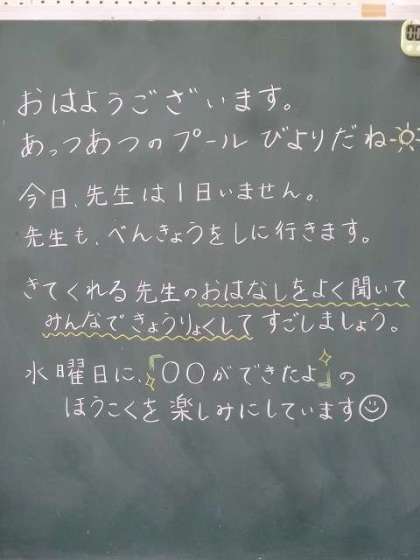 おはようございます。
あっつあつのプールびよりだね
今日、先生は1日いません。
先生も、べんきょうをしに行きます。
きてくれる先生のおはなしをよく聞いて
みんなできょうりょくしてすごしましょう。
水曜日に、『○○ができたよ』の
ほうこくを楽しみにしています☺